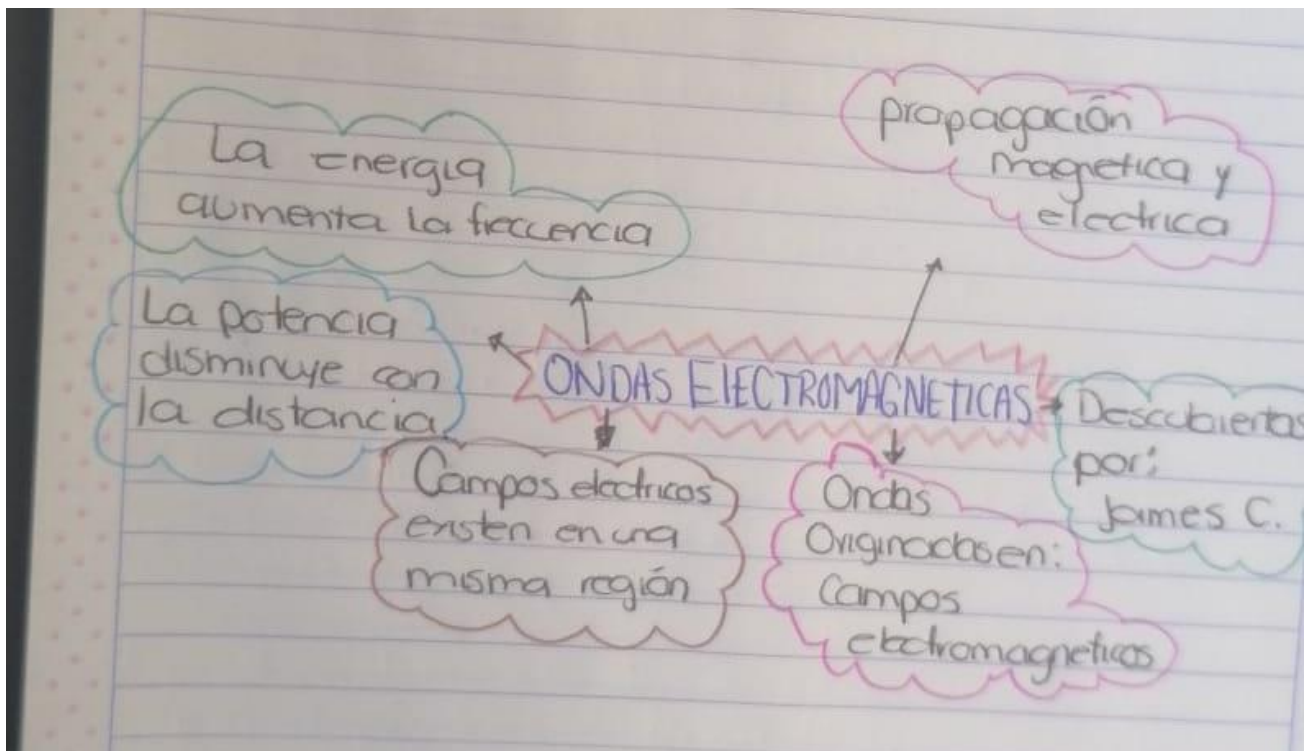 La Energia
aumenta la freccencia
propagación
magnetica y
electrica
La potencia
disminuye con
la distancia
ONDAS ElECTROMAGNETICAS
Descubiertas
por:
James C.
Campos electricos
existen en una
misma región
Ondas
Originadas en:
Campos
electromagneticos